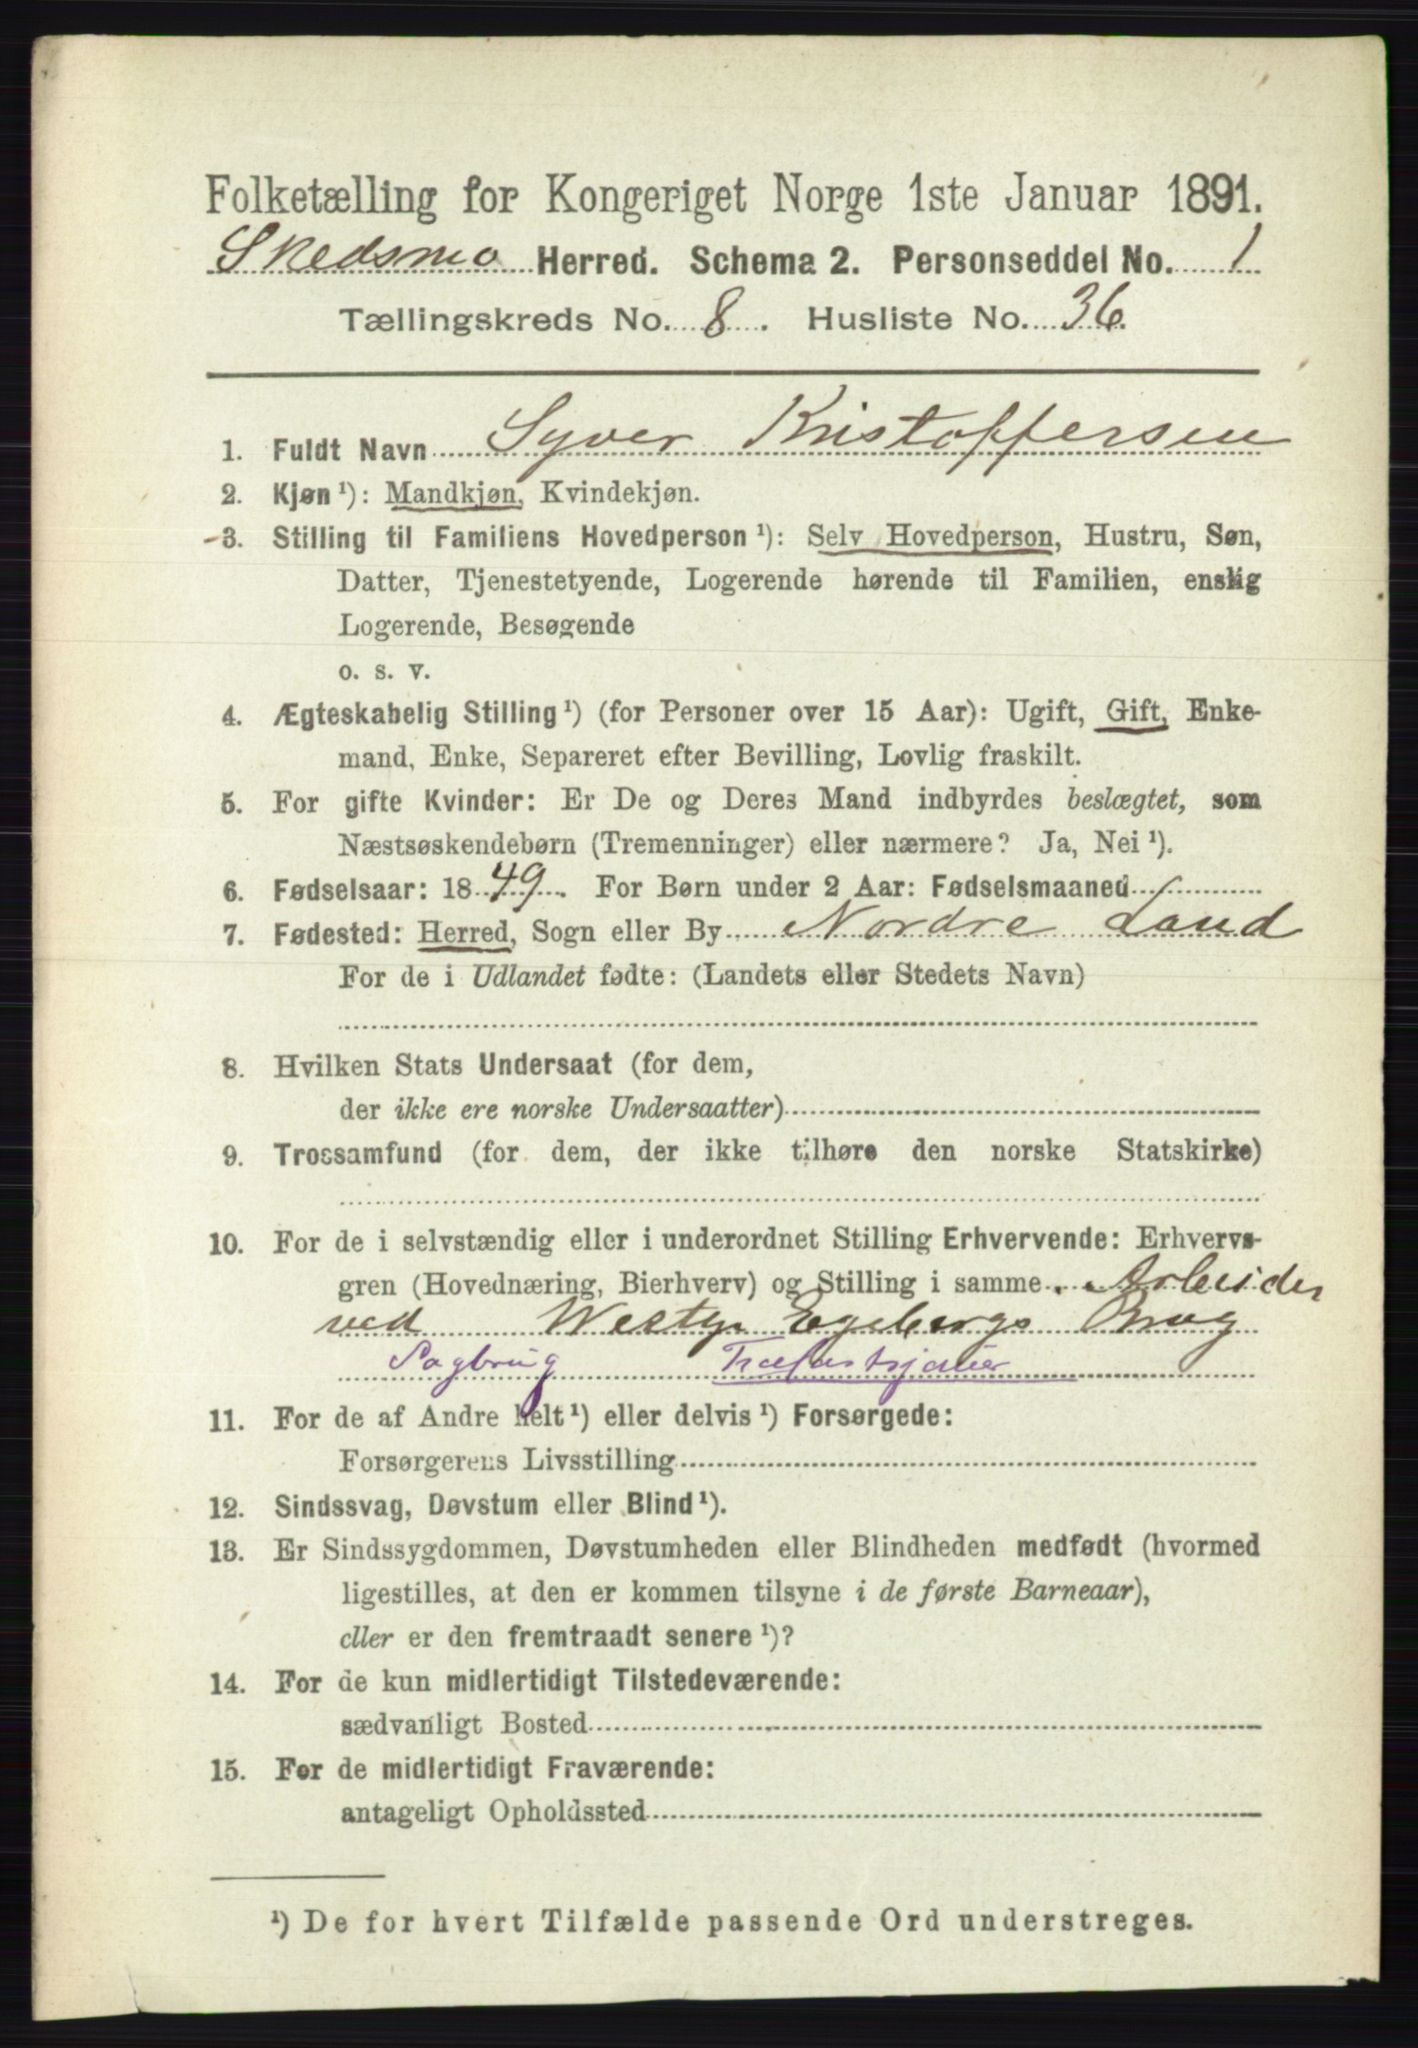 Folketælling for Kongeriget Norge 1ste Januar 1891.
Skedsmo Herred. Schema 2. Personseddel No. 1
Tællingskreds No. 8. Husliste No. 36.
1. Fuldt Navn Syver Kristoffersen
2. Kjøn¹): Mandkjøn, Kvindekjøn.
3. Stilling til Familiens Hovedperson¹): Selv Hovedperson, Hustru, Søn,
Datter, Tjenestetyende, Logerende hørende til Familien, enslig
Logerende, Besøgende
o. s. v.
4. Ægteskabelig Stilling¹) (for Personer over 15 Aar): Ugift, Gift, Enke-
mand, Enke, Separeret efter Bevilling, Lovlig fraskilt.
5. For gifte Kvinder: Er De og Deres Mand indbyrdes beslægtet, som
Næstsøskendebørn (Tremenninger) eller nærmere? Ja, Nei¹).
6. Fødselsaar: 1849. For Børn under 2 Aar: Fødselsmaaned
7. Fødested: Herred, Sogn eller By Nordre Land
For de i Udlandet fødte: (Landets eller Stedets Navn)
8. Hvilken Stats Undersaat (for dem,
der ikke ere norske Undersaatter)
9. Trossamfund (for dem, der ikke tilhøre den norske Statskirke)
10. For de i selvstændig eller i underordnet Stilling Erhvervende: Erhvervs-
gren (Hovednæring, Bierhverv) og Stilling i samme. Arbeider
ved Westye Egebergs Brug
Sagbrug
11. For de af Andre helt¹) eller delvis¹) Forsørgede:
Forsørgerens Livsstilling
12. Sindssvag, Døvstum eller Blind¹).
13. Er Sindssygdommen, Døvstumheden eller Blindheden medfødt (hvormed
ligestilles, at den er kommen tilsyne i de første Barneaar),
eller er den fremtraadt senere¹)?
14. For de kun midlertidigt Tilstedeværende:
sædvanligt Bosted
15. For de midlertidigt Fraværende:
antageligt Opholdssted
¹) De for hvert Tilfælde passende Ord understreges.